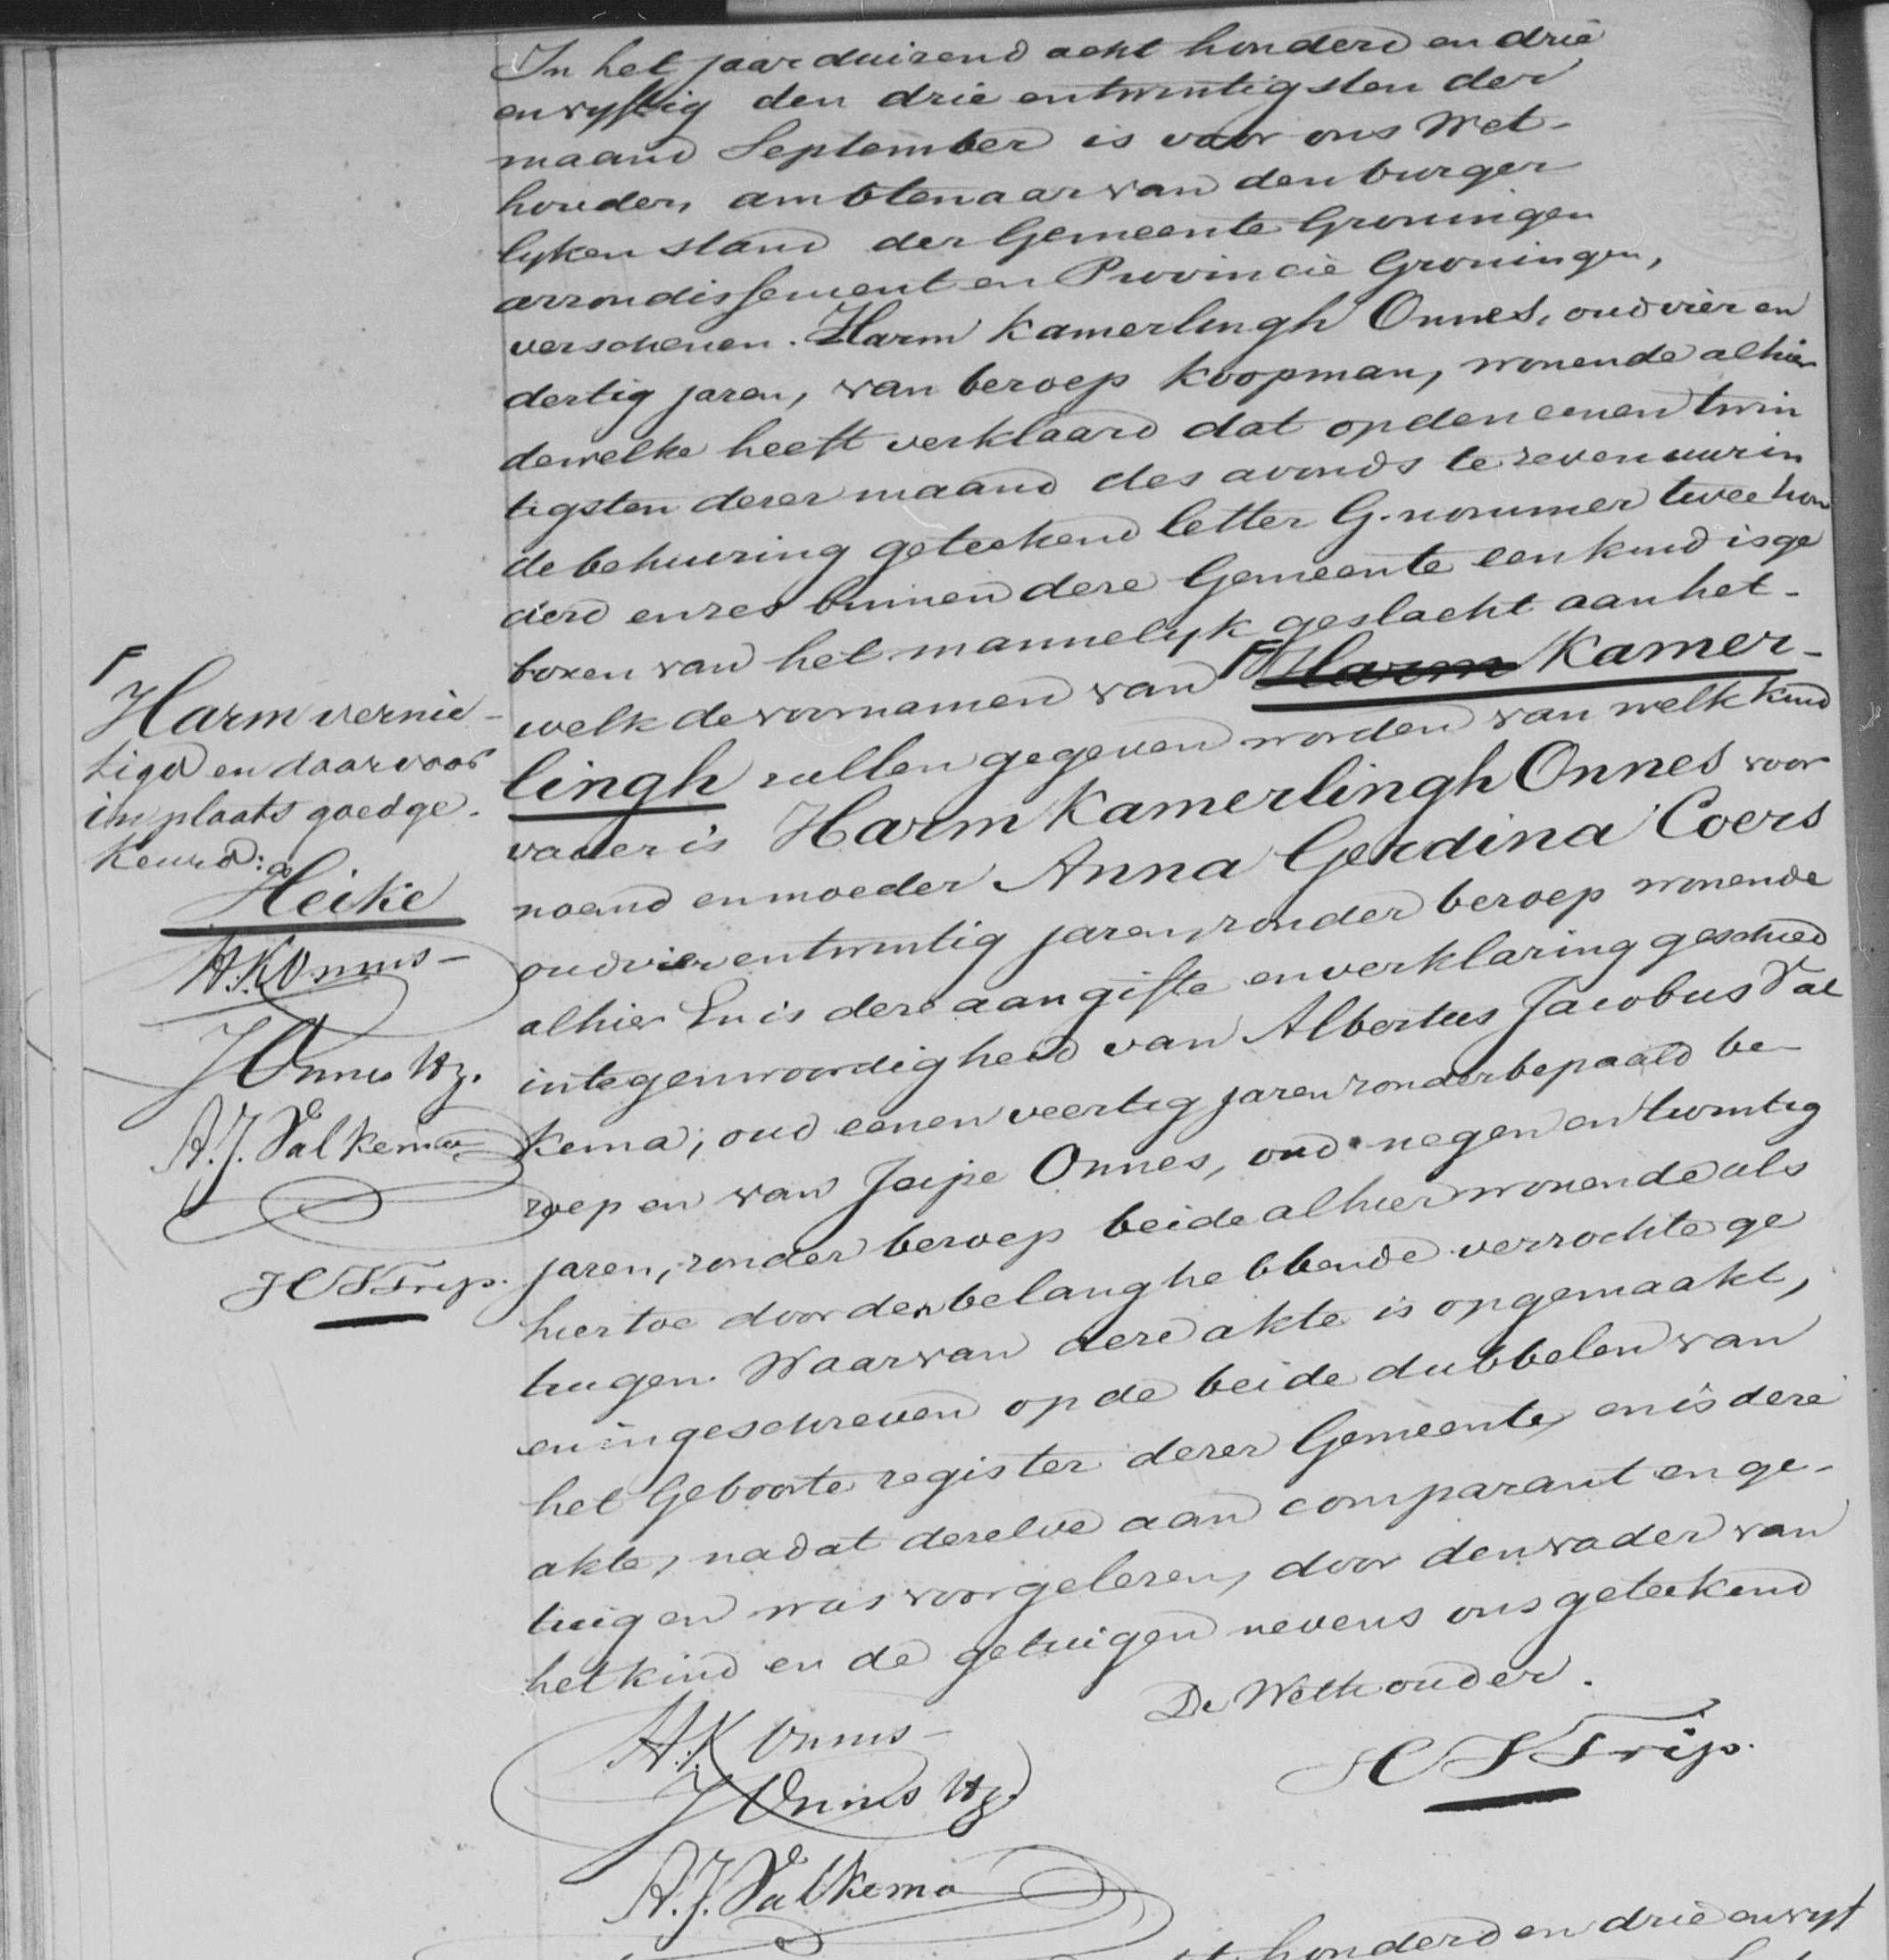 In het jaar duizend acht honderd en drie
en vyftig den drie entwintigsten der
maand September is voor ons Wet-
houder, ambtenaar van den burger
lyken stand der Gemeente Groningen
arrondissement en Provincie Groningen,
verschenen. Harm Kamerlingh Onnes, oud vier en
dertig jaren, van beroep Koopman, wonende alhier
dewelke heeft verklaard dat op den eenen twin
tigsten dezer maand des avonds te zeven uur in
de behuizing geteekend letter G. nommer twee hon
derd en zes binnen deze Gemeente een kind is ge
boren van het mannelyk geslacht aan het-
welk de voornamen van F Harm Kamer-
lingh zullen gegeven worden van welk kind
vader is Harm Kamerlingh Onnes voor
noemd en moeder Anna Gerdina Coers
oud vier entwintig jaren, zonder beroep wonende
alhier En is deze aangifte en verklaring geschied
in tegenwoordigheid van Albertus Jacobus Val
kema, oud eenen veertig jaren zonder bepaald be-
roep en van Jeipe Onnes, oud negen en twintig
jaren, zonder beroep beide alhier wonende als
hiertoe door den belanghebbende verzochte ge
tuigen. Waarvan deze akte is opgemaakt,
en ingeschreven op de beide dubbelen van
het Geboorte register dezer Gemeente, en is deze
akte, nadat dezelve aan comparant en ge-
tuigen was voorgelezen, door den vader van
het kind en de getuigen nevens ons geteekend
De Wethouder.
H.K Onnes
J Onnes Hz.
A.J. Valkema
H J Trip.
F
Harm vernie-
tigd en daarvoor
in plaats goedge-
keurd:
Heike
H.K Onnes
J Onnes Hz.
A.J. Valkema
H J Trip.
honderd en drie en vyf